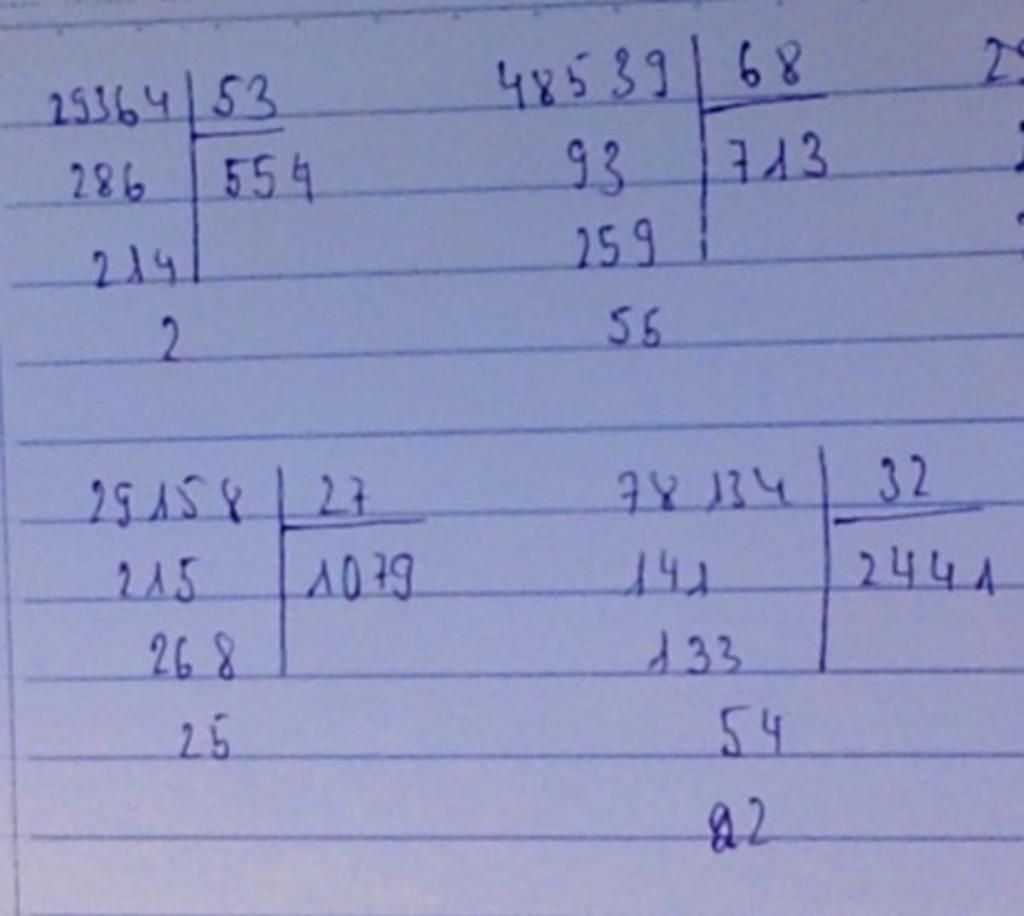 29364 53 48539 68
286 554 93 713
214 259
2 55
29158 27 78134 32
215 1079 141 2441
268 133
25 54
22